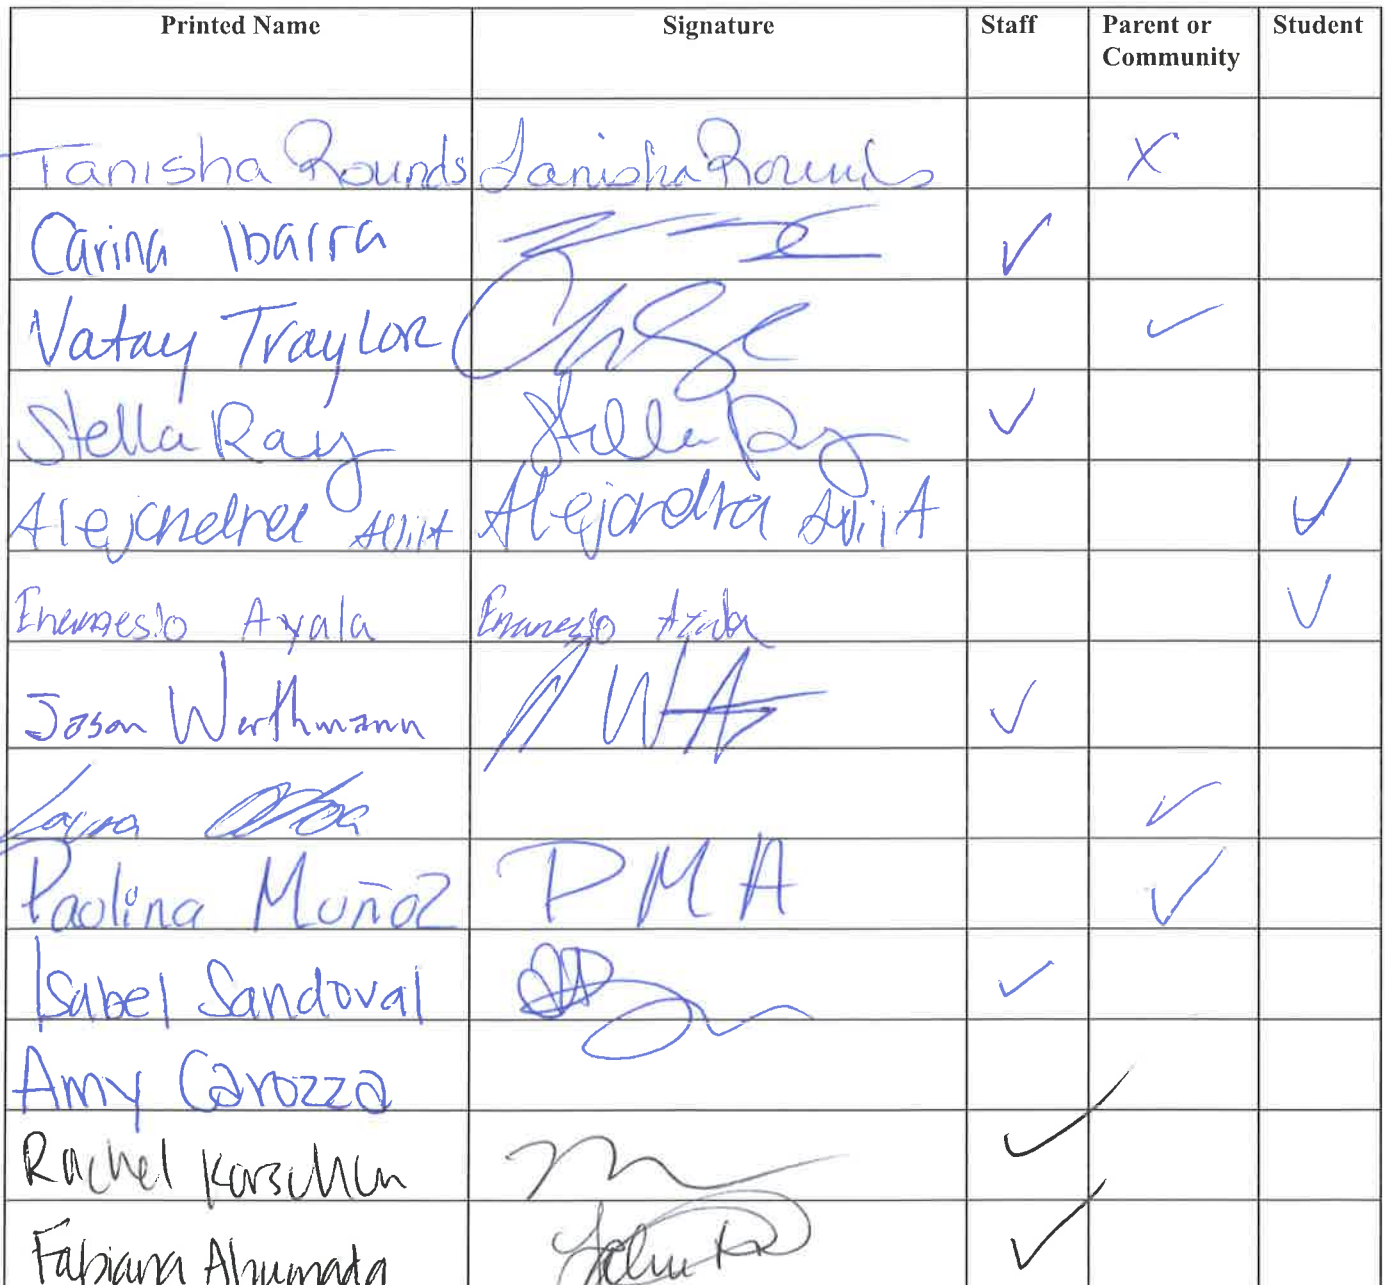 Printed Name Signature Staff Parent or Community Student
Tanisha Rounds Tanisha Rounds X
Carina Ibarra ✓
Vatay Traylor ✓
Stella Ray Stella Ray ✓
Alejandra AvilA Alejandra AvilA ✓
Ayala Ayala ✓
Jason Werthmann ✓
✓
Paulina Muñoz PMA ✓
Isabel Sandoval ✓
Amy Carozza
Rachel ✓
Fabiana Ahumada ✓